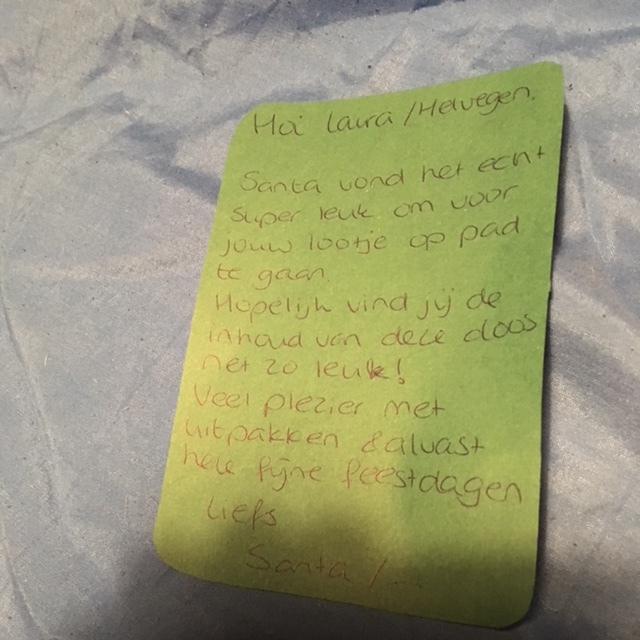 Hoi Laura / Helwegen.
Santa vond het echt
super leuk om voor
jouw lootje op pad
te gaan.
Hopelijk vind jij de
inhoud van deze doos
net zo leuk!
Veel plezier met
uitpakken & alvast
hele fijne feestdagen
Liefs
Santa / ...